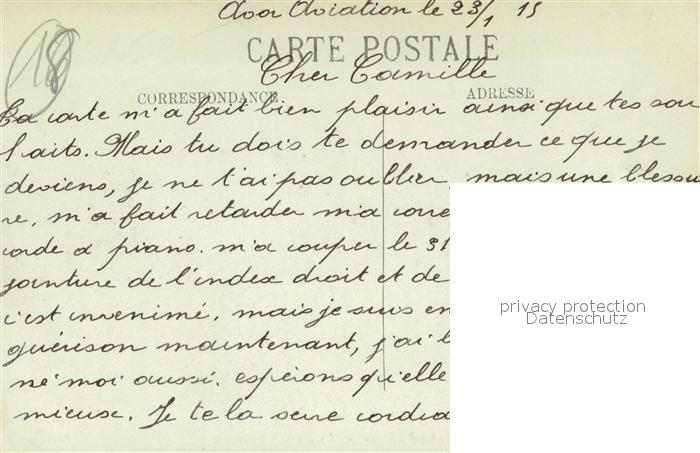 Avor Aviation le 23/1 15
18
CARTE POSTALE
Cher Camille
CORRESPONDANCE
ADRESSE
Ta carte m'a fait bien plaisir ainsi que tes sou
haits. Mais tu dois te demander ce que je
deviens, je ne t'ai pas oublier, mais une blessu
re, m'a fait retarder ma corre
corde a piano. m'a couper le 31
jointure de l'index droit et de
c'est invenimé, mais je suis en
guérison maintenant, j'ai
né moi aussi. espérons qu'elle
mieux. Je te la serre cordia
privacy protection
Datenschutz